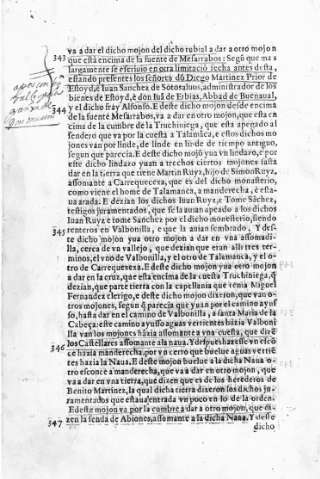 va a dar el dicho mojon del dicho rubial a dar a otro mojon
343 que está encima de la fuente de Mesarrabos: Segũ que mas
largamente se escriuio en otra limitaciõ fecha antes desta,
estando presentes los señores dõ Diego Martinez Prior de
Estoyd, è Iuan Sanchez de Sotosaluos, administrador de los
bienes de Estoyd, è don fray de Erbias, Abbad de Buenaual,
344 y el dicho fray Alfonso. E deste dicho mojon desde encima
de la fuente Mesarrabos, va a dar en otro mojon, que esta en
cima de la cumbre de la Truchiniega, que esta apegado al
sendero que va por la cuesta a Talamãca, e estos dichos mo
jones van por linde, de linde en linde de tiempo antiguo,
segun que parecia. E deste dicho mojõ yua vn lindazo, e por
este dicho lindazo yuan a trechos ciertos mojones fasta
dar en la tierra que tiene Martin Ruyz, hijo de Simon Ruyz,
assomante a Carrequeceza, que es del dicho monesterio,
como viene el home de Talamanca, a manderecha, è esta-
ua arada. E dezian los dichos Iuan Ruyz e Tome Sãchez,
testigos juramentados, que se la auian apeado a los dichos
Iuan Ruyz e tome Sanchez por el dicho monesterio, siendo
renteros en Valbonilla, e que la auian sembrado. Y des-
345 te dicho mojon yua otro mojon a dar en vna assomadi-
lla, cerca de vn vallejo, que dezian que eran alli tres ter-
minos, el vno de Valbonilla, y el otro de Talamanca, y el o-
tro de Carrequeceza. E deste dicho mojon yua otro mojon
a dar en la cruz, que esta encima de la cuesta Truchiniega, q̃
dezian, que parte tierra con la capellania que tenia Miguel
Fernandez clerigo, e deste dicho mojon dixeron, que van o-
tros mojones, segun q̃ parecia que yuan por el camino ayus
so, hasta dar en el camino de Valbonilla, a santa Maria de la
Cabeça: este camino ayusso aguas vertientes házia Valboni
lla van los mojones házia assomante a vna cuesta, que dizẽ
346 los Castellares assomante a la naua. Y despues haze vn escõ
ce házia manderecha, por vn cerro que buelue aguas vertiẽ
tes házia la Naua. E deste mojon buelue a la dicha Naua o-
tro esconce a manderecha, que va a dar en otro mojon, que
va a dar en vna tierra, que dizen que es de los herederos de
Benito Martinez, la qual dicha tierra dizeron los dichos ju-
ramentados que estaua entrada vn poco en lo de la orden.
E deste mojon va por la cumbre a dar a otro mojon, que di-
347 zen la senda de Abionco, assomante a la dicha Naua. Y desse
dicho